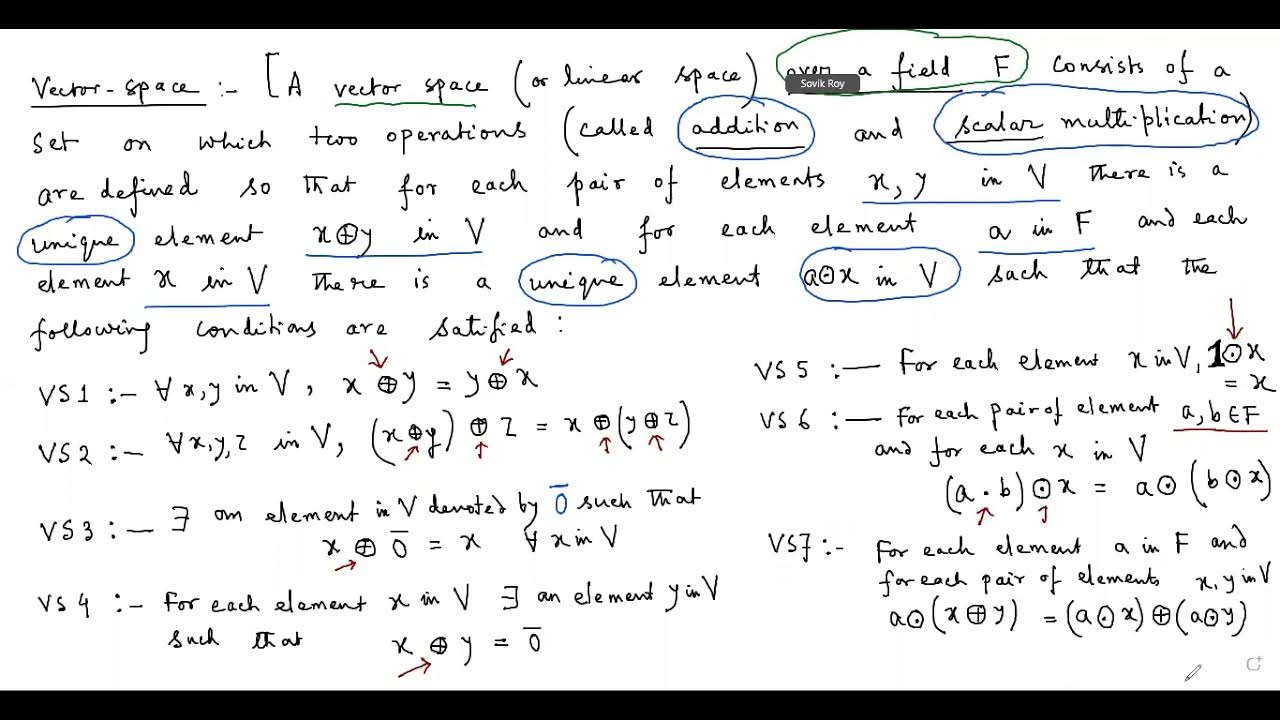 Vector-space :- [A vector space (or linear space) over a field F consists of a
Sovik Roy
set on which two operations (called addition and scalar multiplication)
are defined so that for each pair of elements x, y in V there is a
unique element x⊕y in V and for each element a in F and each
element x in V there is a unique element a⊙x in V such that the
following conditions are satified :
VS1 :- ∀ x,y in V, x ⊕ y = y ⊕ x
VS2 :- ∀ x,y,z in V, (x⊕y) ⊕ z = x ⊕ (y ⊕ z)
VS3 :- ∃ an element in V denoted by 0̄ such that
x ⊕ 0̄ = x ∀ x in V
VS4 :- For each element x in V ∃ an element y in V
such that x ⊕ y = 0̄
VS5 :- For each element x in V, 1⊙x
= x
VS6 :- For each pair of element a, b ∈ F
and for each x in V
(a · b) ⊙ x = a⊙ (b ⊙ x)
VS7 :- For each element a in F and
for each pair of elements x, y in V
a⊙(x ⊕ y) = (a⊙x) ⊕ (a⊙y)